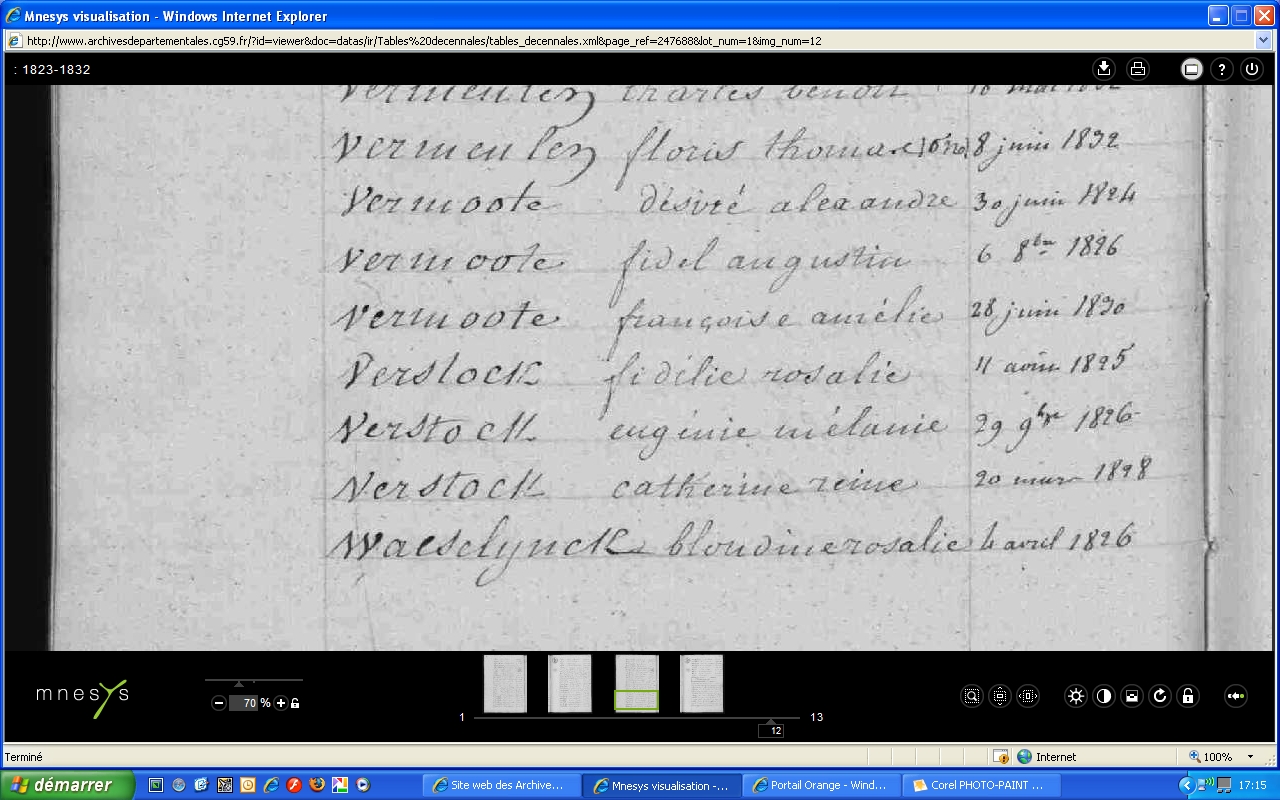 Mnesys visualisation - Windows Internet Explorer
http://www.archivesdepartementales.cg59.fr/?id=viewer&doc=datas/ir/Tables%20decennales/tables_decennales.xml&page_ref=247688&lot_num=1&img_num=12
: 1823-1832
?
Vermeulen charles benoit 18 mai 1832
Vermeulen floris thomas 8 juin 1832
Vermoote désiré alexandre 30 juin 1824
Vermoote fidel augustin 6 8bre 1826
Vermoote françoise amélie 28 juin 1830
Verstock fidélie rosalie 11 août 1825
Verstock eugénie mélanie 29 9bre 1826
Verstock catherine reine 20 mars 1828
Waeselynck blondine rosalie 4 avril 1826
mnesys
70 %
1 13
12
Terminé Internet 100%
démarrer Site web des Archive... Mnesys visualisation -... Portail Orange - Wind... Corel PHOTO-PAINT ... 17:15